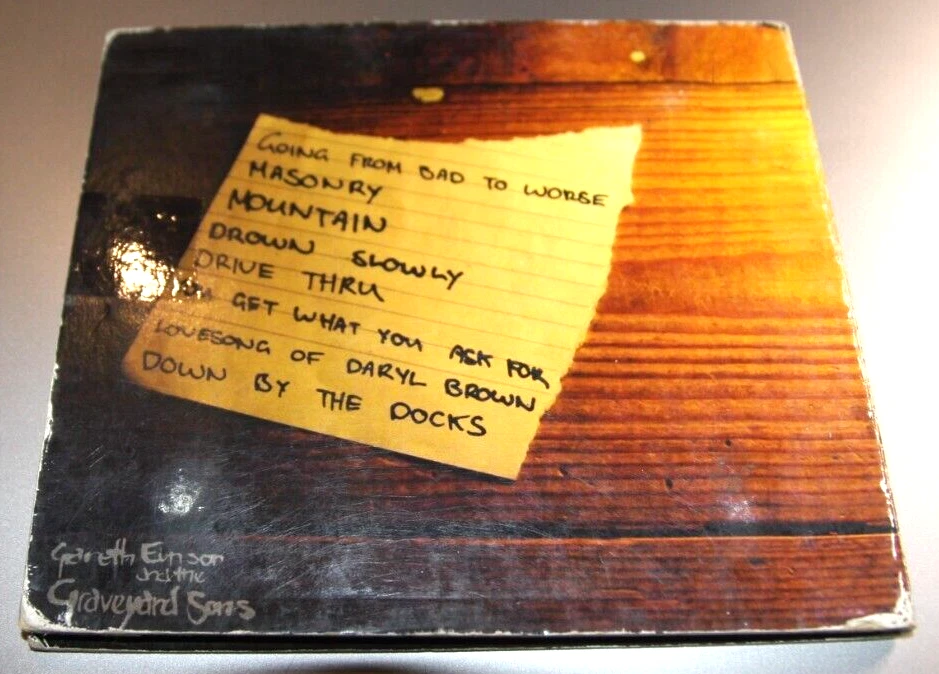 GOING FROM BAD TO WORSE
MASONRY
MOUNTAIN
DROWN SLOWLY
DRIVE THRU
GET WHAT YOU ASK FOR
LOVESONG OF DARYL BROWN
DOWN BY THE DOCKS
Gareth
and the
Graveyard Sons